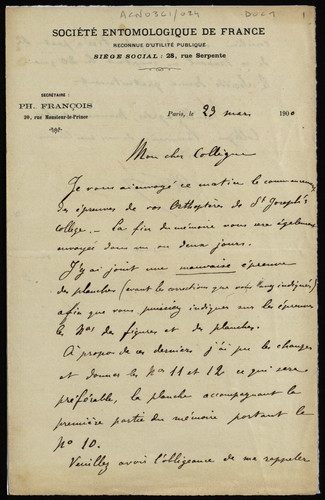 ACN0361/024 DOC 1 1
SOCIÉTÉ ENTOMOLOGIQUE DE FRANCE
RECONNUE D'UTILITÉ PUBLIQUE
SIÈGE SOCIAL : 28, rue Serpente
SECRÉTAIRE :
PH. FRANÇOIS
20, rue Monsieur-le-Prince
Paris, le 23 mars 1900
Mon cher Collègue
Je vous ai envoyé ce matin le commencement
des épreuves de vos Orthoptères de St Joseph's
College. — La fin du mémoire vous sera également
envoyée dans un ou deux jours.
J'y ai joint une mauvaise épreuve
des planches (avant les corrections que vous indiquées)
afin que vous puissiez indiquer sur les épreuves
les Nos des figures et des planches.
A propos de ces derniers j'ai pu les changer
et donner les Nos 11 et 12 ce qui sera
préférable, la planche accompagnant la
première partie du mémoire portant le
No 10.
Veuillez avoir l'obligeance de me rappeler